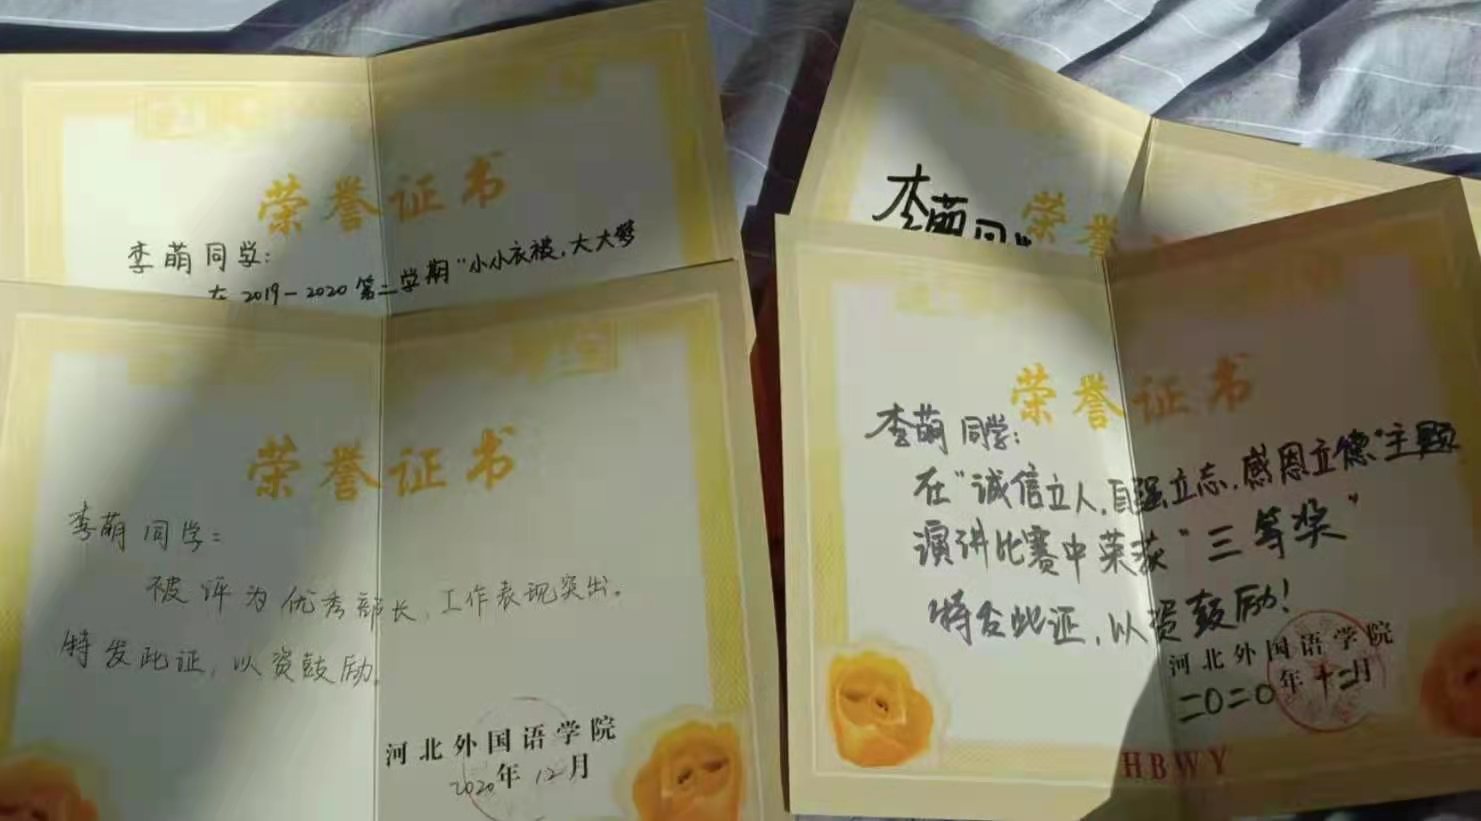 荣誉证书
李萌同学：
在2019-2020第二学期“小小衣被，大大梦
荣誉证书
李萌同学：
被评为优秀部长，工作表现突出。
特发此证，以资鼓励。
河北外国语学院
2020年12月
荣誉
李萌同学
荣誉证书
李萌同学：
在“诚信立人，自强立志，感恩立德”主题
演讲比赛中荣获“三等奖”
特发此证，以资鼓励！
河北外国语学院
二〇二〇年十二月
HBWY